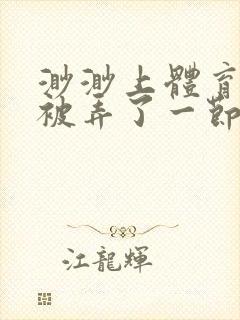 渺渺上體育
被弄了一節
江龍輝